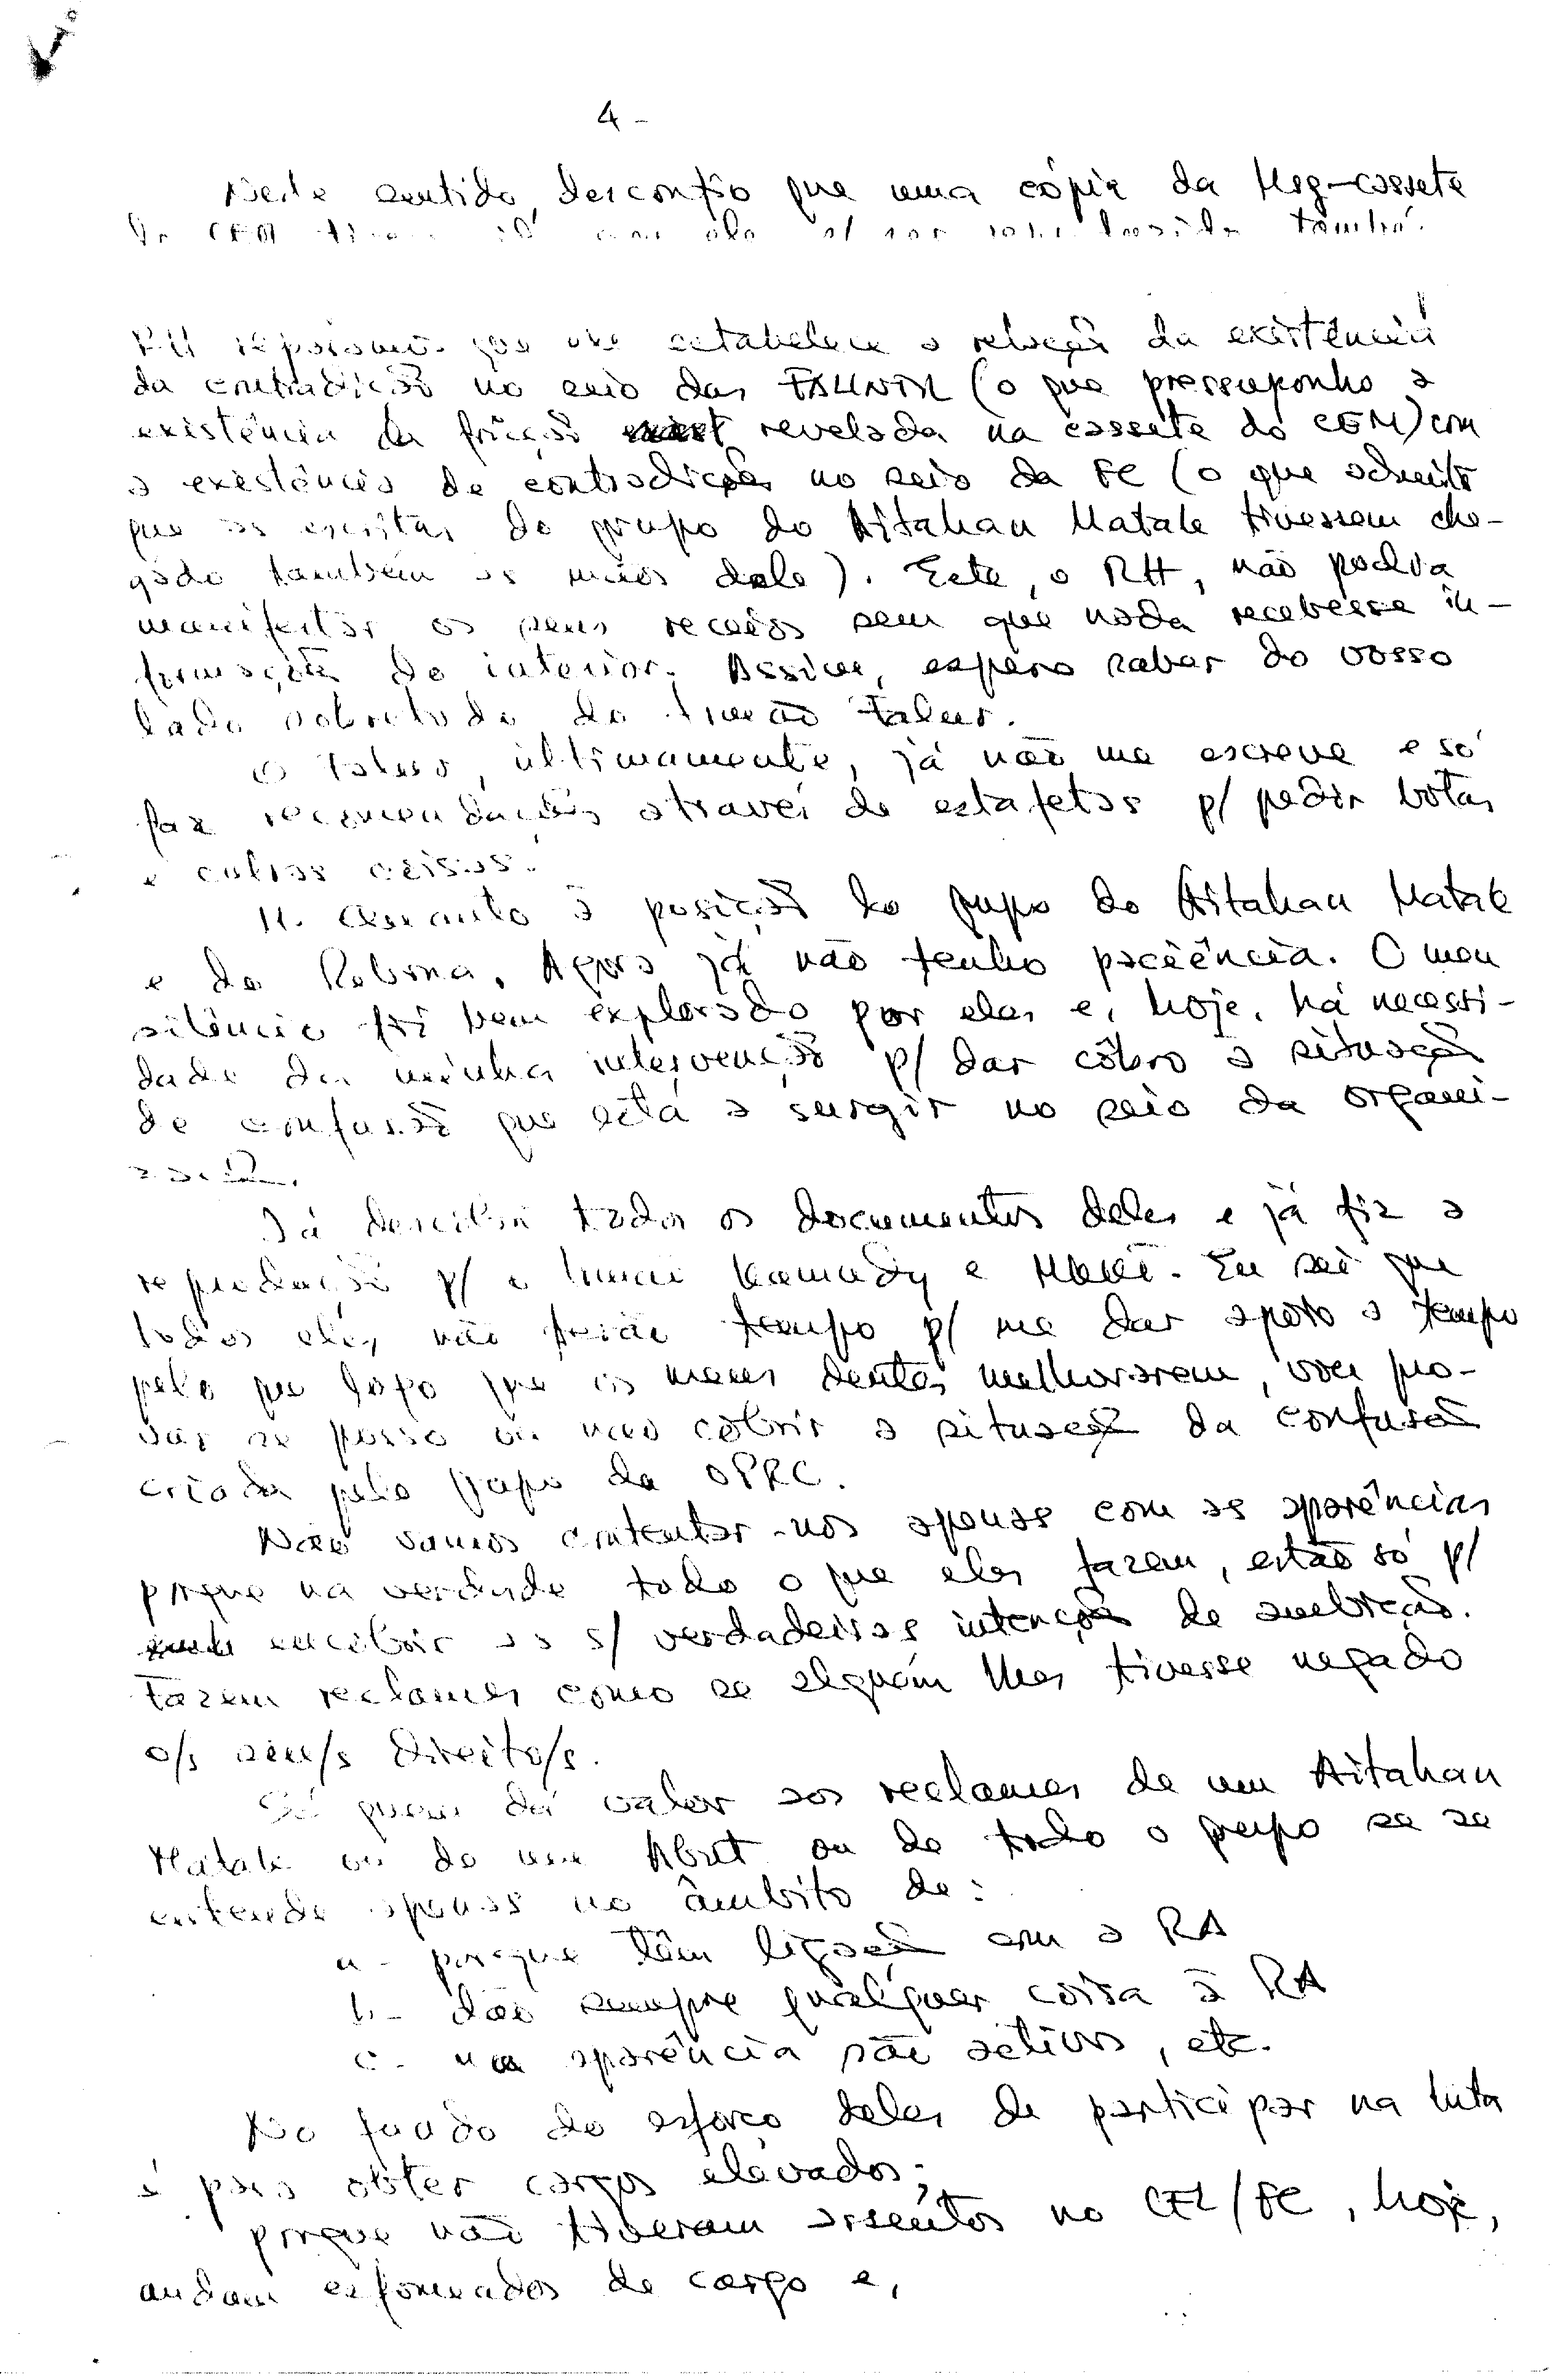 4 -
Neste sentido, desconfio que uma cópia da Msg-cassete
do CEM também.
que ele estabelece a relação da existência
da contradição no seio das FALINTIL (o que pressuponho a
existência da fricção revelada na cassete do CEM) com
a existência de contradições no seio da FC (o que admite
que as escritas do grupo do Aitahan Matak tivessem che-
gado também às mãos dele). Este, o RH, não podia
manifestar os seus receios sem que nada recebesse in-
formações do interior. Assim, espero saber do vosso
lado sobretudo do irmão Falur.
O Falur, ultimamente, já não me escreve e só
faz recomendações através de estafetas p/ pedir botas
e outras coisas.
11. Quanto à posição do grupo do Aitahan Matak
e da Rabina. Agora já não tenho paciência. O meu
silêncio foi bem explorado por eles e, hoje, há necessi-
dade da minha intervenção p/ dar côbro à situação
de confusão que está a surgir no seio da organi-
zação.
Já descobri todos os documentos deles e já fiz a
reprodução p/ o irmão e Eu sei que
todos eles não terão tempo p/ me dar apoio a tempo
pelo que logo que os meus dentes melhorarem, vou pro-
var se posso ou não cobrir a situação da confusão
criada pelo grupo da OPRC.
Não vamos contentar-nos apenas com as aparências
porque na verdade todo o que eles fazem, estão só p/
encobrir as s/ verdadeiras intenções de ambição.
Fazem reclames como se alguém lhes tivesse negado
o/s seu/s direito/s.
Só quem dá valor aos reclames de um Aitahan
Matak ou de um Abut ou de todo o grupo se se
entende apenas no âmbito de:
a - porque têm ligação com a RA
b - dão sempre qualquer coisa à RA
c - na aparência são activos, etc.
No fundo do esforço deles de participar na luta
é para obter cargos elevados;
porque não tiveram assentos no CEL/FC, hoje,
andam esfomeados de cargo e,